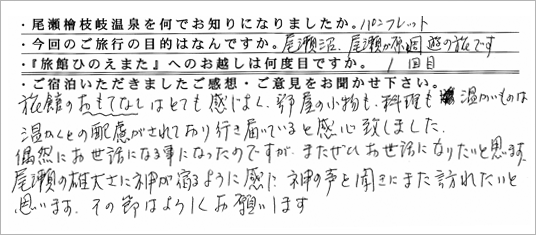 ・尾瀬檜枝岐温泉を何でお知りになりましたか。パンフレット
・今回のご旅行の目的はなんですか。尾瀬沼、尾瀬ヶ原周遊の旅です
・『旅館ひのえまた』へのお越しは何度目ですか。 1回目
・ご宿泊いただきましたご感想・ご意見をお聞かせ下さい。
旅館のおもてなしはとても感じよく、部屋の小物も、料理も 温かいものは
温かくとの配慮がされており行き届いていると感心致しました。
偶然にお世話になる事になったのですが、またぜひお世話になりたいと思います。
尾瀬の雄大さに神が宿るように感じ 神の声を聞きにまた訪れたいと
思います。その節はよろしくお願います